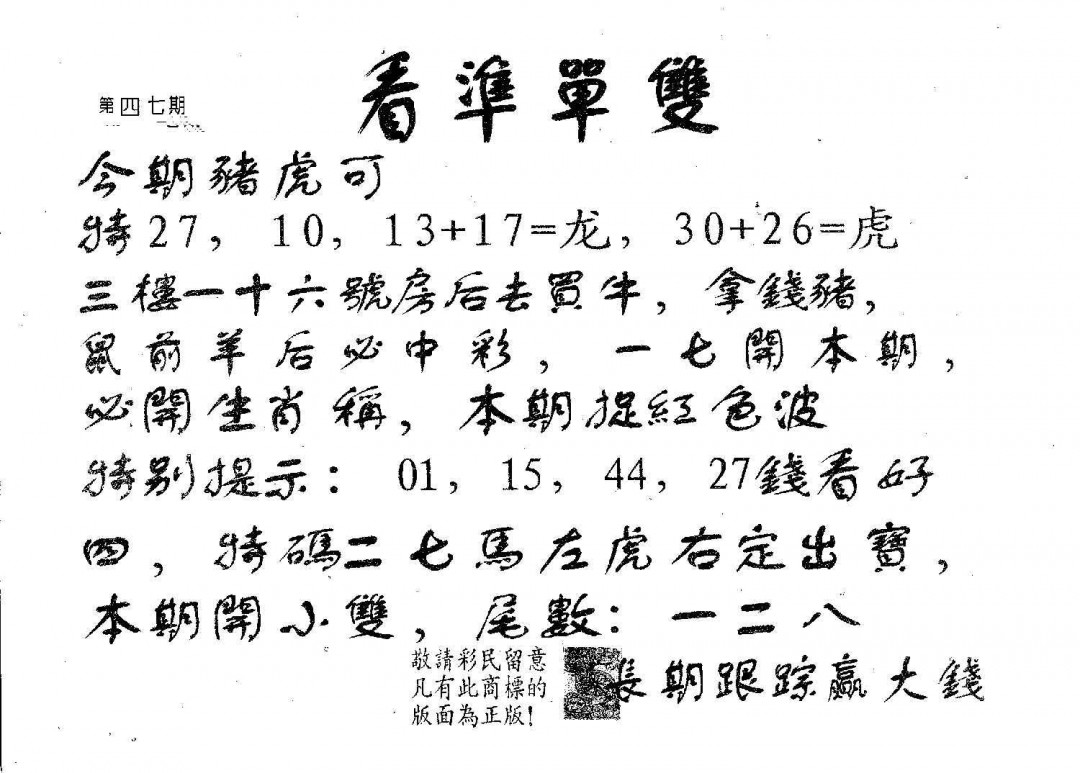 第四七期
看準單雙
今期豬虎可
特27，10，13+17=龙，30+26=虎
三樓一十六號房后去買牛，拿錢豬，
鼠前羊后必中彩，一七開本期，
必開生肖稱，本期捉紅色波
特别提示：01，15，44，27錢看好
四，特碼二七馬左虎右定出寶，
本期開小雙，尾數：一二八
敬請彩民留意
凡有此商標的
版面為正版！
長期跟踪贏大錢